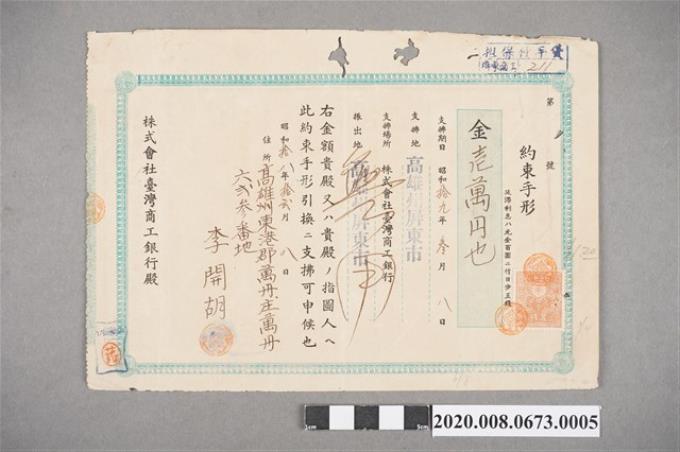 擔保付手貸
屏東商工 211
第 號
約束手形
金壱萬円也
延滯利息ハ元金百圓ニ付日歩五錢
支拂期日 昭和拾九年參月八日
支拂地 高雄州屏東市
支拂場所 株式會社臺灣商工銀行
振出地 高雄州屏東市
右金額貴殿又ハ貴殿ノ指圖人ヘ
此約束手形引換ニ支拂可申候也
昭和拾八年拾貳月八日
住所 高雄州東港郡萬丹庄萬丹
六貳參番地
李開胡
株式會社臺灣商工銀行殿
1cm
5cm
2020.008.0673.0005